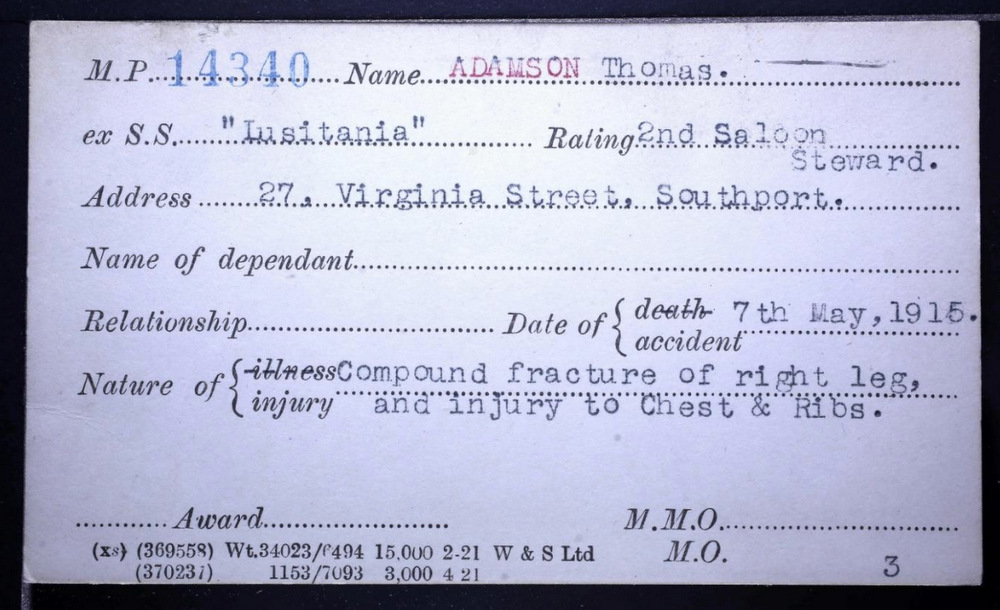 M.P. 14340 Name ADAMSON Thomas.
ex S.S. "Lusitania" Rating 2nd Saloon
Steward.
Address 27, Virginia Street, Southport.
Name of dependant
Relationship Date of { death 7th May, 1915.
accident
Nature of { illness Compound fracture of right leg,
injury and injury to Chest & Ribs.
Award M.M.O.
(xs) (369558) Wt.34023/6494 15,000 2-21 W & S Ltd M.O.
(370237) 1153/7093 3,000 4 21 3